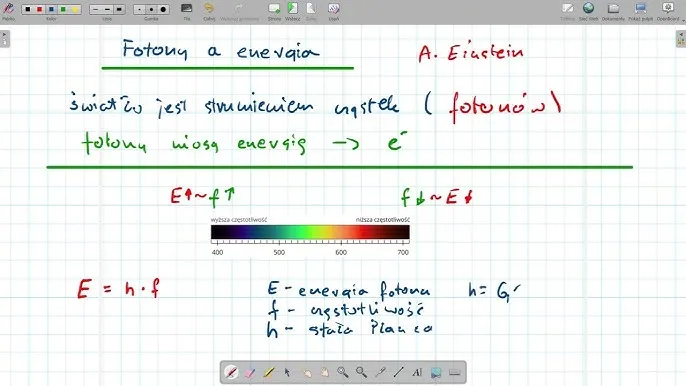 Pędzel Kolor Linie Gumka Tło Cofnij Usuń stronę Strona Wstecz Dalej Usuń Tablica Sieć Web Dokumenty Pokaż pulpit OpenBoard
Fotony a energia A. Einstein
światło jest strumieniem cząstek (fotonów)
fotony niosą energię → e⁻
E↑~f↑ f↓~E↓
wyższa częstotliwość niższa częstotliwość
400 500 600 700
E = h·f
E - energia fotona h = 6,
f - częstotliwość
h - stała Plancka